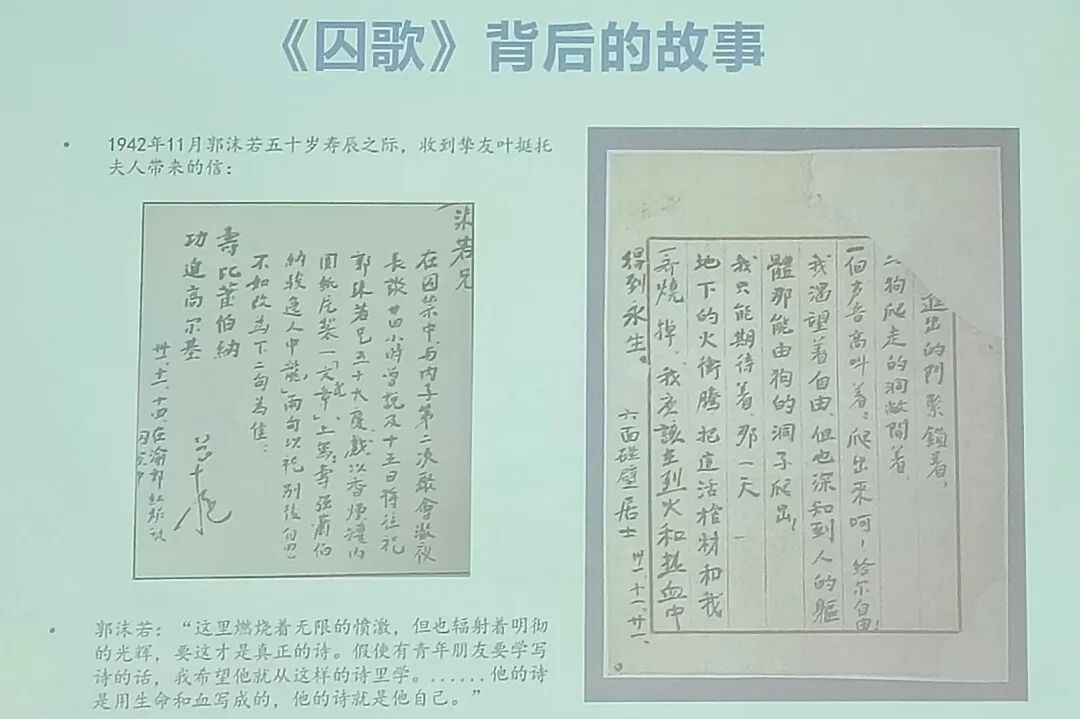 《囚歌》背后的故事
1942年11月郭沫若五十岁寿辰之际，收到挚友叶挺托
夫人带来的信：
沫若兄
在囚禁中，与内子第二次歡會激夜
長談廿四小時曾說及十五日将往祝
郭沫若兄五十大慶，戲以香煙罐内
圓紙片製一「文章」上寫壽强蕭伯
納駿逸人中龍，兩句以祝别後自思
不如改為下二句為佳．
壽比蕭伯納
功追高尔基
卅、十一、十四、在渝郊紅炉
郭沫若：“这里燃烧着无限的愤激，但也辐射着明彻
的光辉，要这才是真正的诗。假使有青年朋友要学写
诗的话，我希望他就从这样的诗里学。......他的诗
是用生命和血写成的，他的诗就是他自己。”
進出的門緊鎖着，
狗爬走的洞敞開着，
一個声音高叫着：爬出來呵！給尔自由！
我渴望着自由，但也深知到人的軀
體那能由狗的洞子爬出！
我只能期待着，那一天
地下的火衝騰，把這活棺材和我
一齊燒掉，我應該在烈火和热血中
得到永生。
六面碰壁居士
卅一．十一．廿一．